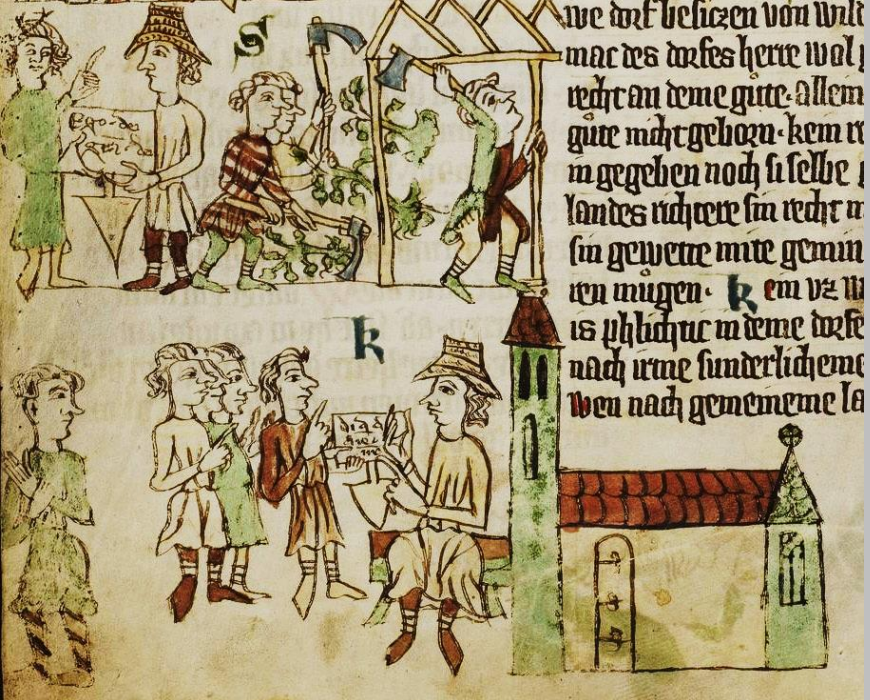 S
Ego de
we dorf besiczen von wild
mac des dorfes herre wol
recht an deme gůte· allein
gůte nicht geborn· kein re
in gegeben noch si selbe
landes richtere sin recht m
sin gewette mite gemin
ren můgen· k ein vz w
is phlichtic in deme dorfe
nach irme sunderlicheme
wen nach gemeineme la
k